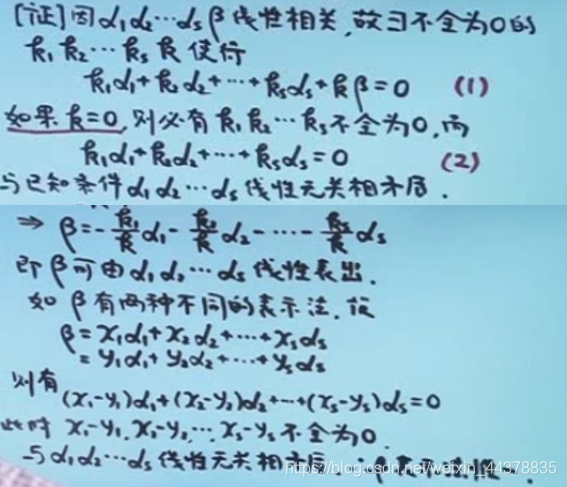 [证]因α₁α₂…αₛβ线性相关,故∃不全为0的
k₁k₂…kₛk使得
k₁α₁+k₂α₂+…+kₛαₛ+kβ=0 (1)
如果k=0,则必有k₁k₂…kₛ不全为0,而
k₁α₁+k₂α₂+…+kₛαₛ=0 (2)
与已知条件α₁α₂…αₛ线性无关相矛盾.
⇒ β=-k₁/kα₁-k₂/kα₂-…-kₛ/kαₛ
即β可由α₁α₂…αₛ线性表出.
如β有两种不同的表示法,设
β=x₁α₁+x₂α₂+…+xₛαₛ
=y₁α₁+y₂α₂+…+yₛαₛ
则有
(x₁-y₁)α₁+(x₂-y₂)α₂+…+(xₛ-yₛ)αₛ=0
此时 x₁-y₁,x₂-y₂,…,xₛ-yₛ不全为0.
与α₁α₂…αₛ线性无关相矛盾.
https://blog.csdn.net/weixin_44378835